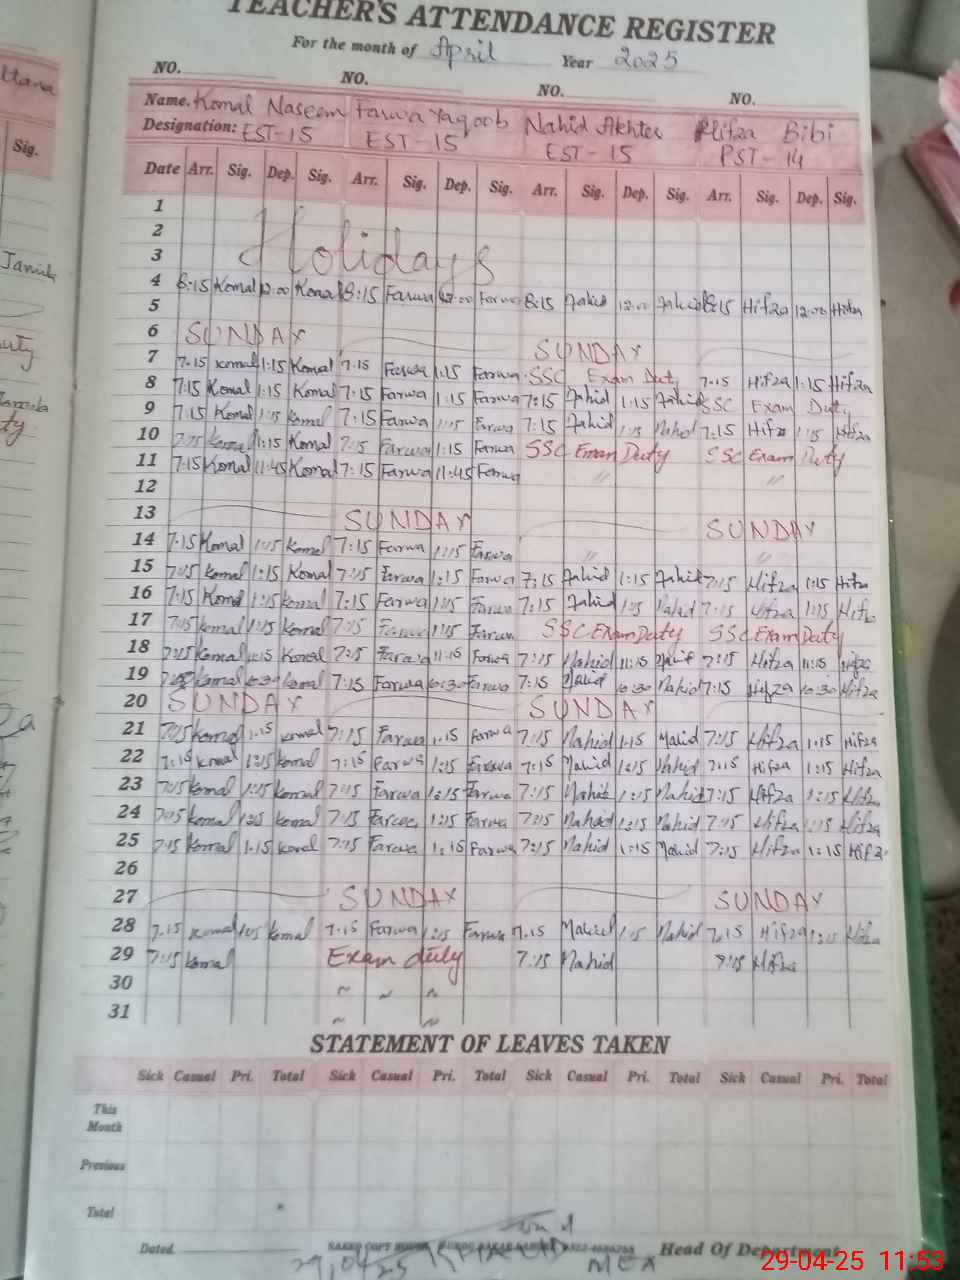 TEACHER'S ATTENDANCE REGISTER
For the month of April Year 2025
NO. NO. NO. NO.
Name. Komal Naseem Farwa Yaqoob Nahid Akhter Hifza Bibi
Designation: EST-15 EST-15 EST-15 PST-14
Date Arr. Sig. Dep. Sig. Arr. Sig. Dep. Sig. Arr. Sig. Dep. Sig. Arr. Sig. Dep. Sig.
1
2
3 Holidays
4 8:15 Komal 12:00 Komal 8:15 Farwa 12:00 Farwa 8:15 Nahid 12:00 Nahid 8:15 Hifza 12:00 Hifza
5
6 SUNDAY SUNDAY
7 7:15 Komal 1:15 Komal 7:15 Farwa 1:15 Farwa SSC Exam Duty 7:15 Hifza 1:15 Hifza
8 7:15 Komal 1:15 Komal 7:15 Farwa 1:15 Farwa 7:15 Nahid 1:15 Nahid SSC Exam Duty
9 7:15 Komal 1:15 Komal 7:15 Farwa 1:15 Farwa 7:15 Nahid 1:15 Nahid 7:15 Hifza 1:15 Hifza
10 7:15 Komal 1:15 Komal 7:15 Farwa 1:15 Farwa SSC Exam Duty SSC Exam Duty
11 7:15 Komal 11:45 Komal 7:15 Farwa 11:45 Farwa " "
12
13 SUNDAY SUNDAY
14 7:15 Komal 1:15 Komal 7:15 Farwa 1:15 Farwa " "
15 7:15 Komal 1:15 Komal 7:15 Farwa 1:15 Farwa 7:15 Nahid 1:15 Nahid 7:15 Hifza 1:15 Hifza
16 7:15 Komal 1:15 Komal 7:15 Farwa 1:15 Farwa 7:15 Nahid 1:15 Nahid 7:15 Hifza 1:15 Hifza
17 7:15 Komal 1:15 Komal 7:15 Farwa 1:15 Farwa SSC Exam Duty SSC Exam Duty
18 7:15 Komal 11:15 Komal 7:15 Farwa 11:15 Farwa 7:15 Nahid 11:15 Nahid 7:15 Hifza 11:15 Hifza
19 Komal 10:30 Komal 7:15 Farwa 10:30 Farwa 7:15 Nahid 10:30 Nahid 7:15 Hifza 10:30 Hifza
20 SUNDAY SUNDAY
21 7:15 Komal 1:15 Komal 7:15 Farwa 1:15 Farwa 7:15 Nahid 1:15 Nahid 7:15 Hifza 1:15 Hifza
22 7:15 Komal 1:15 Komal 7:15 Farwa 1:15 Farwa 7:15 Nahid 1:15 Nahid 7:15 Hifza 1:15 Hifza
23 7:15 Komal 1:15 Komal 7:15 Farwa 1:15 Farwa 7:15 Nahid 1:15 Nahid 7:15 Hifza 1:15 Hifza
24 7:15 Komal 1:15 Komal 7:15 Farwa 1:15 Farwa 7:15 Nahid 1:15 Nahid 7:15 Hifza 1:15 Hifza
25 7:15 Komal 1:15 Komal 7:15 Farwa 1:15 Farwa 7:15 Nahid 1:15 Nahid 7:15 Hifza 1:15 Hifza
26
27 SUNDAY SUNDAY
28 7:15 Komal 1:15 Komal 7:15 Farwa 1:15 Farwa 7:15 Nahid 1:15 Nahid 7:15 Hifza 1:15 Hifza
29 7:15 Komal Exam duty 7:15 Nahid 7:15 Hifza
30
31
STATEMENT OF LEAVES TAKEN
Sick Casual Pri. Total Sick Casual Pri. Total Sick Casual Pri. Total Sick Casual Pri. Total
This Month
Previous
Total
Dated. Head Of Department
29/04/25 MEA
29-04-25 11:53